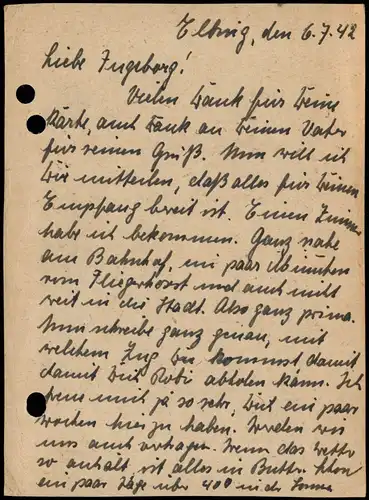 Elbing, den 6.7.42
Liebe Ingeborg!
Vielen Dank für Deine
Karte, auch Dank an Deinen Vater
für seinen Gruß. Nun will ich
Dir mitteilen, daß alles für Deinen
Empfang bereit ist. Einen Zimmer
habe ich bekommen. Ganz nahe
am Bahnhof, ein paar Minuten
vom Fliegerhorst und auch nicht
weit in die Stadt. Also ganz prima.
Nun schreibe ganz genau, mit
welchem Zug Du kommst damit
damit Dich Robi abholen kann. Ich
freue mich ja so sehr, Dich ein paar
Wochen hier zu haben. Werden wir
uns auch vertragen. Wenn das Wetter
so anhält, ist alles in Butter. Schon
ein paar Tage über 40° in der Sonne